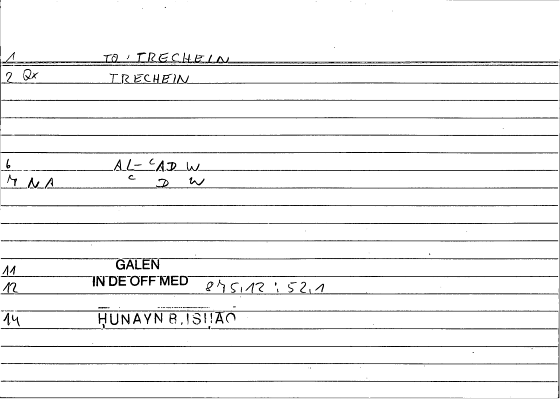 1 TO : TRECHEIN
2 Qx TRECHEIN
6 AL- ʿAD W
7 NA ʿ D W
11 GALEN
12 IN DE OFF MED 875,12 : 52,1
14 ḤUNAYN B. ISḤĀQ